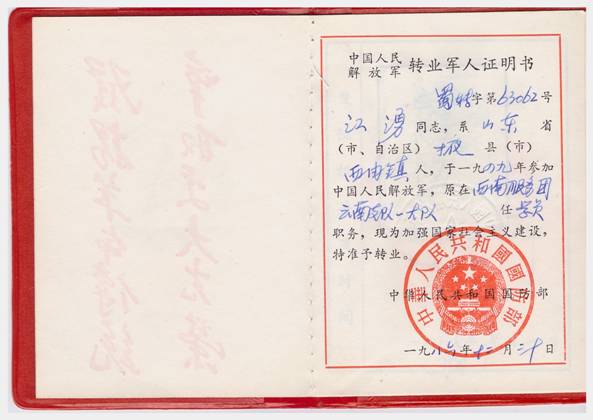 中国人民
解放军 转业军人证明书
蜀转字第63062号
江湧同志，系山东省
（市、自治区）掖县（市）
西由镇人，于一九四九年参加
中国人民解放军，原在西南服务团
云南支队一大队 任学员
职务，现为加强国家社会主义建设，
特准予转业。
中华人民共和国国防部
中华人民共和國國防部
一九八六年十二月二十日